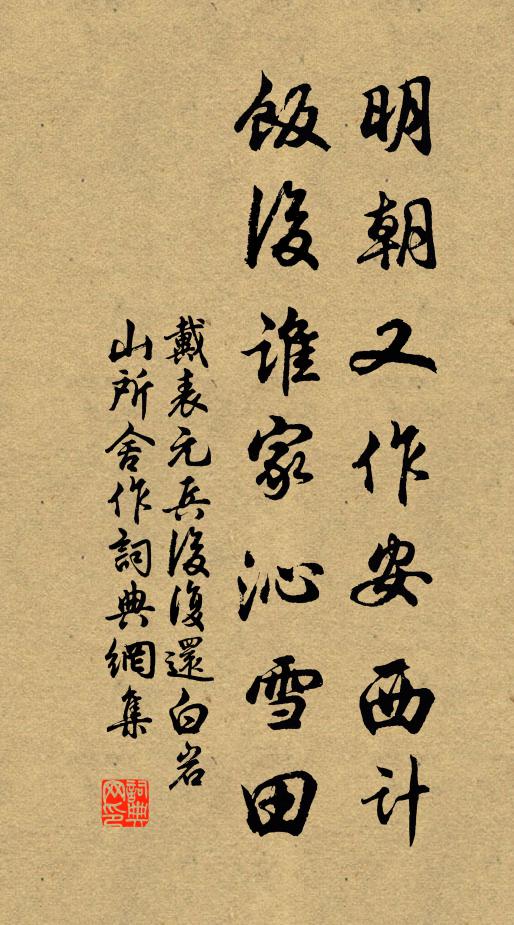 明朝又作安西計
飯後誰家沁雪田
戴表元兵後復還白岩
山所舍作詞典網集
詞典网印